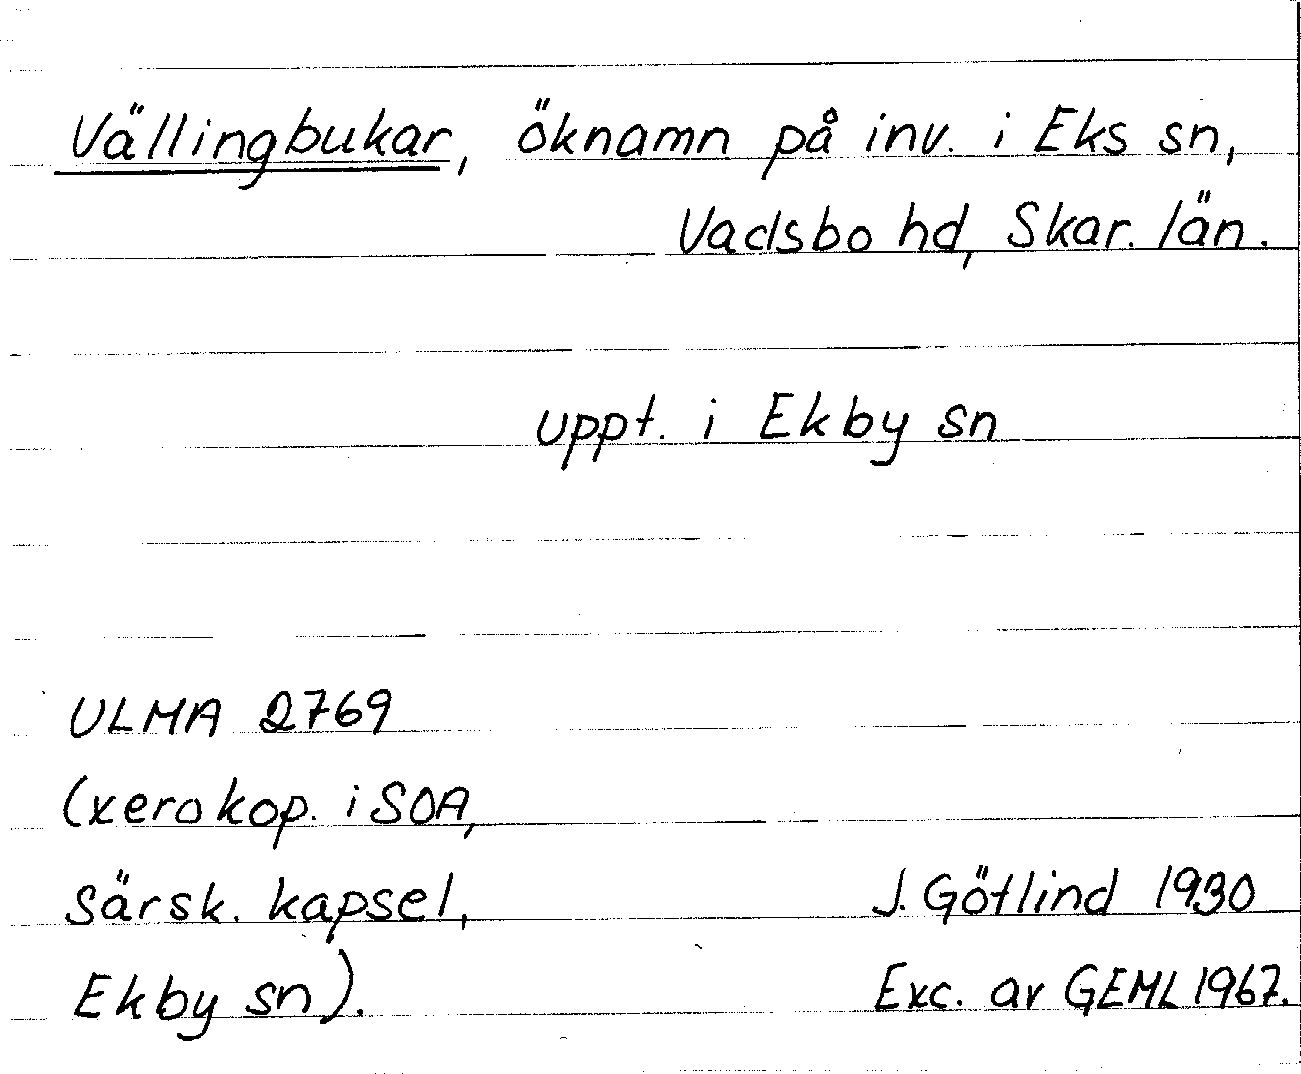 Vällingbukar, öknamn på inv. i Eks sn,
Vadsbo hd, Skar. län.
uppt. i Ekby sn
ULMA 2769
(xerokop. i SOA,
Särsk. kapsel,
J. Götlind 1930
Ekby sn).
Exc. av GEML 1967.